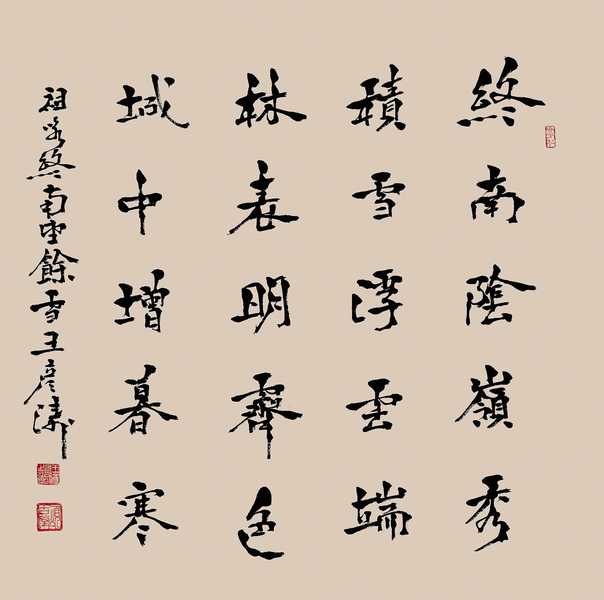 終南陰嶺秀
積雪浮雲端
林表明霽色
城中增暮寒
祖咏終南望餘雪王彦